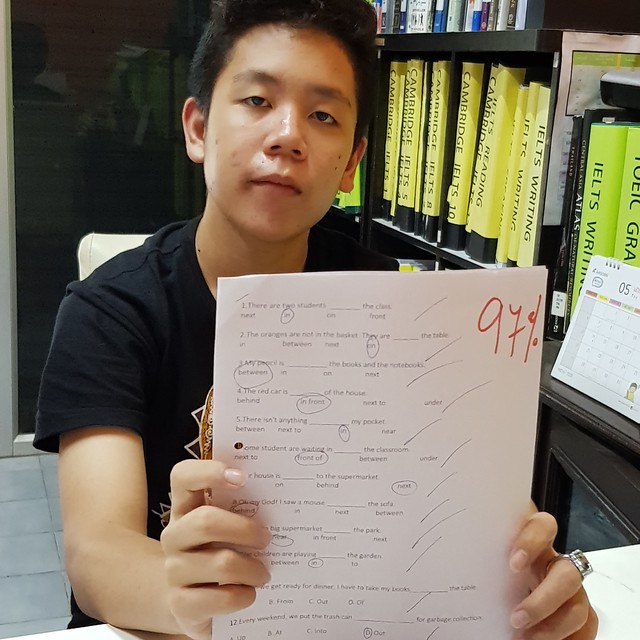 CAMBRIDGE IELTS 5
CAMBRIDGE IELTS
CAMBRIDGE IELTS 8
CAMBRIDGE IELTS 10
IELTS READING
IELTS WRITING
IELTS WRITING
ATLAS
IELTS WRITI
TOEIC GRA
05
97%
1.There are two students ______ the class.
next in on front
2.The oranges are not in the basket. They are ______ the table.
in between next on
3.My pencil is ______ the books and the notebooks.
between in on next
4.The red car is ______ of the house.
behind in front next to under
5.There isn't anything ______ my pocket.
between next to in near
ome student are waiting in ______ the classroom.
next to front of between under
r house is ______ to the supermarket.
on behind next
8.Oh my God! I saw a mouse ______ the sofa.
Behind in next between
big supermarket ______ the park.
near in front next
children are playing ______ the garden.
between in to
we get ready for dinner. I have to take my books ______ the table.
B. From C. Out D. Of
12.Every weekend, we put the trash can ______ for garbage collection.
A. Up B. At C. Into D. Out